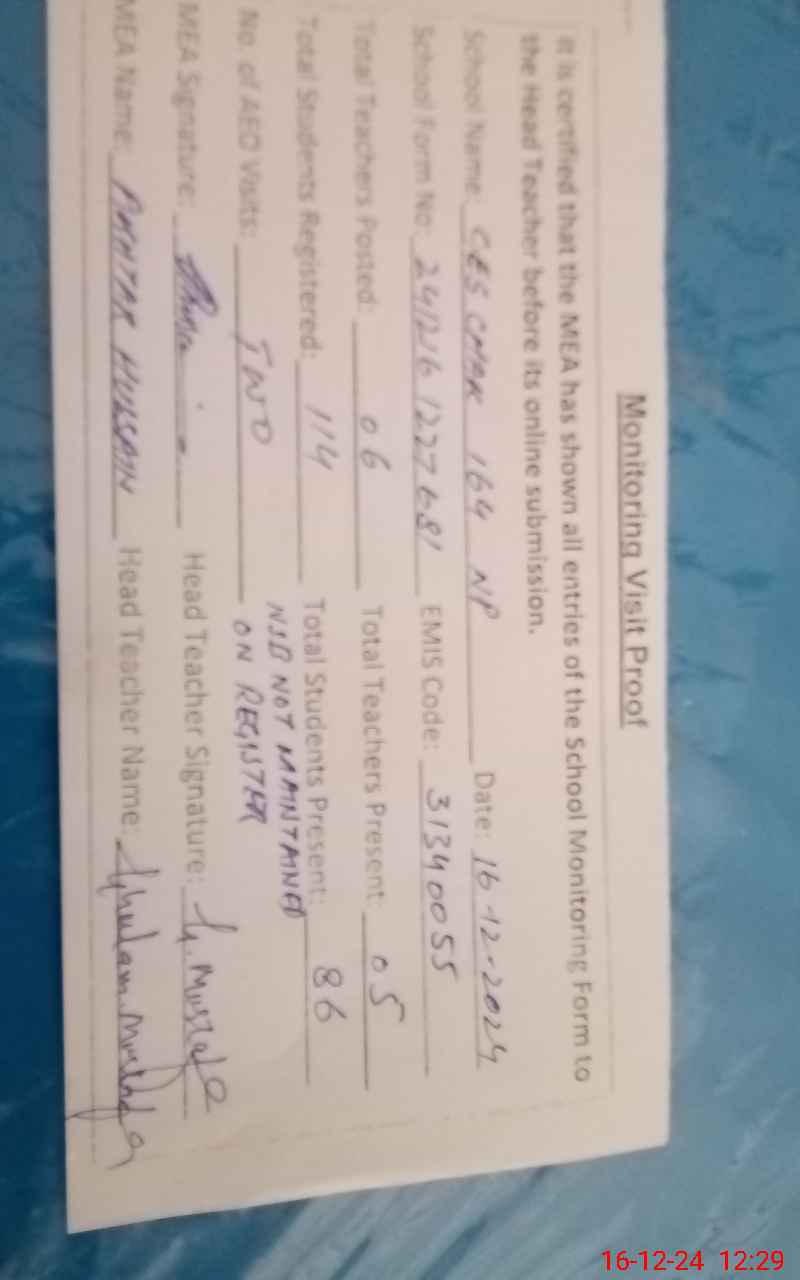 Monitoring Visit Proof
It is certified that the MEA has shown all entries of the School Monitoring Form to
the Head Teacher before its online submission.
School Name: GES CHAK 164 NP Date: 16-12-2024
School Form No: 241216 1227681 EMIS Code: 31340055
Total Teachers Posted: 06 Total Teachers Present: 05
Total Students Registered: 114 Total Students Present: 86
NSB NOT MAINTAINED
No. of AEO Visits: TWO ON REGISTER
MEA Signature: Head Teacher Signature: G. Mustafa
MEA Name: AKHTAR HUSSAIN Head Teacher Name: Ghulam Mustafa
16-12-24 12:29